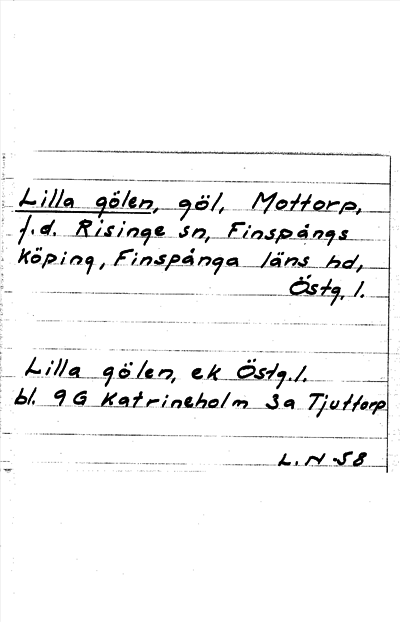 Lilla gölen, göl, Mottorp,
f.d. Risinge sn, Finspångs
köping, Finspånga läns hd,
Östg. l.
Lilla gölen, ek Östg. l.
bl. 9G Katrineholm 3a Tjuttorp
L. N -58